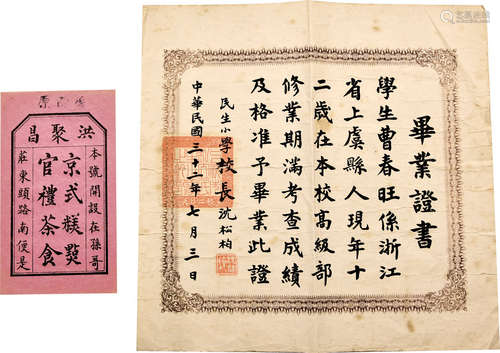 畢業證書
學生曹春旺係浙江
省上虞縣人現年十
二歲在本校高級部
修業期滿考查成績
及格准予畢業此證
民生小學校長沈松柏
中華民國三十二年七月三日
洪聚昌
本號開設在孫哥
京式糕
官禮茶食
莊東頭路南便是